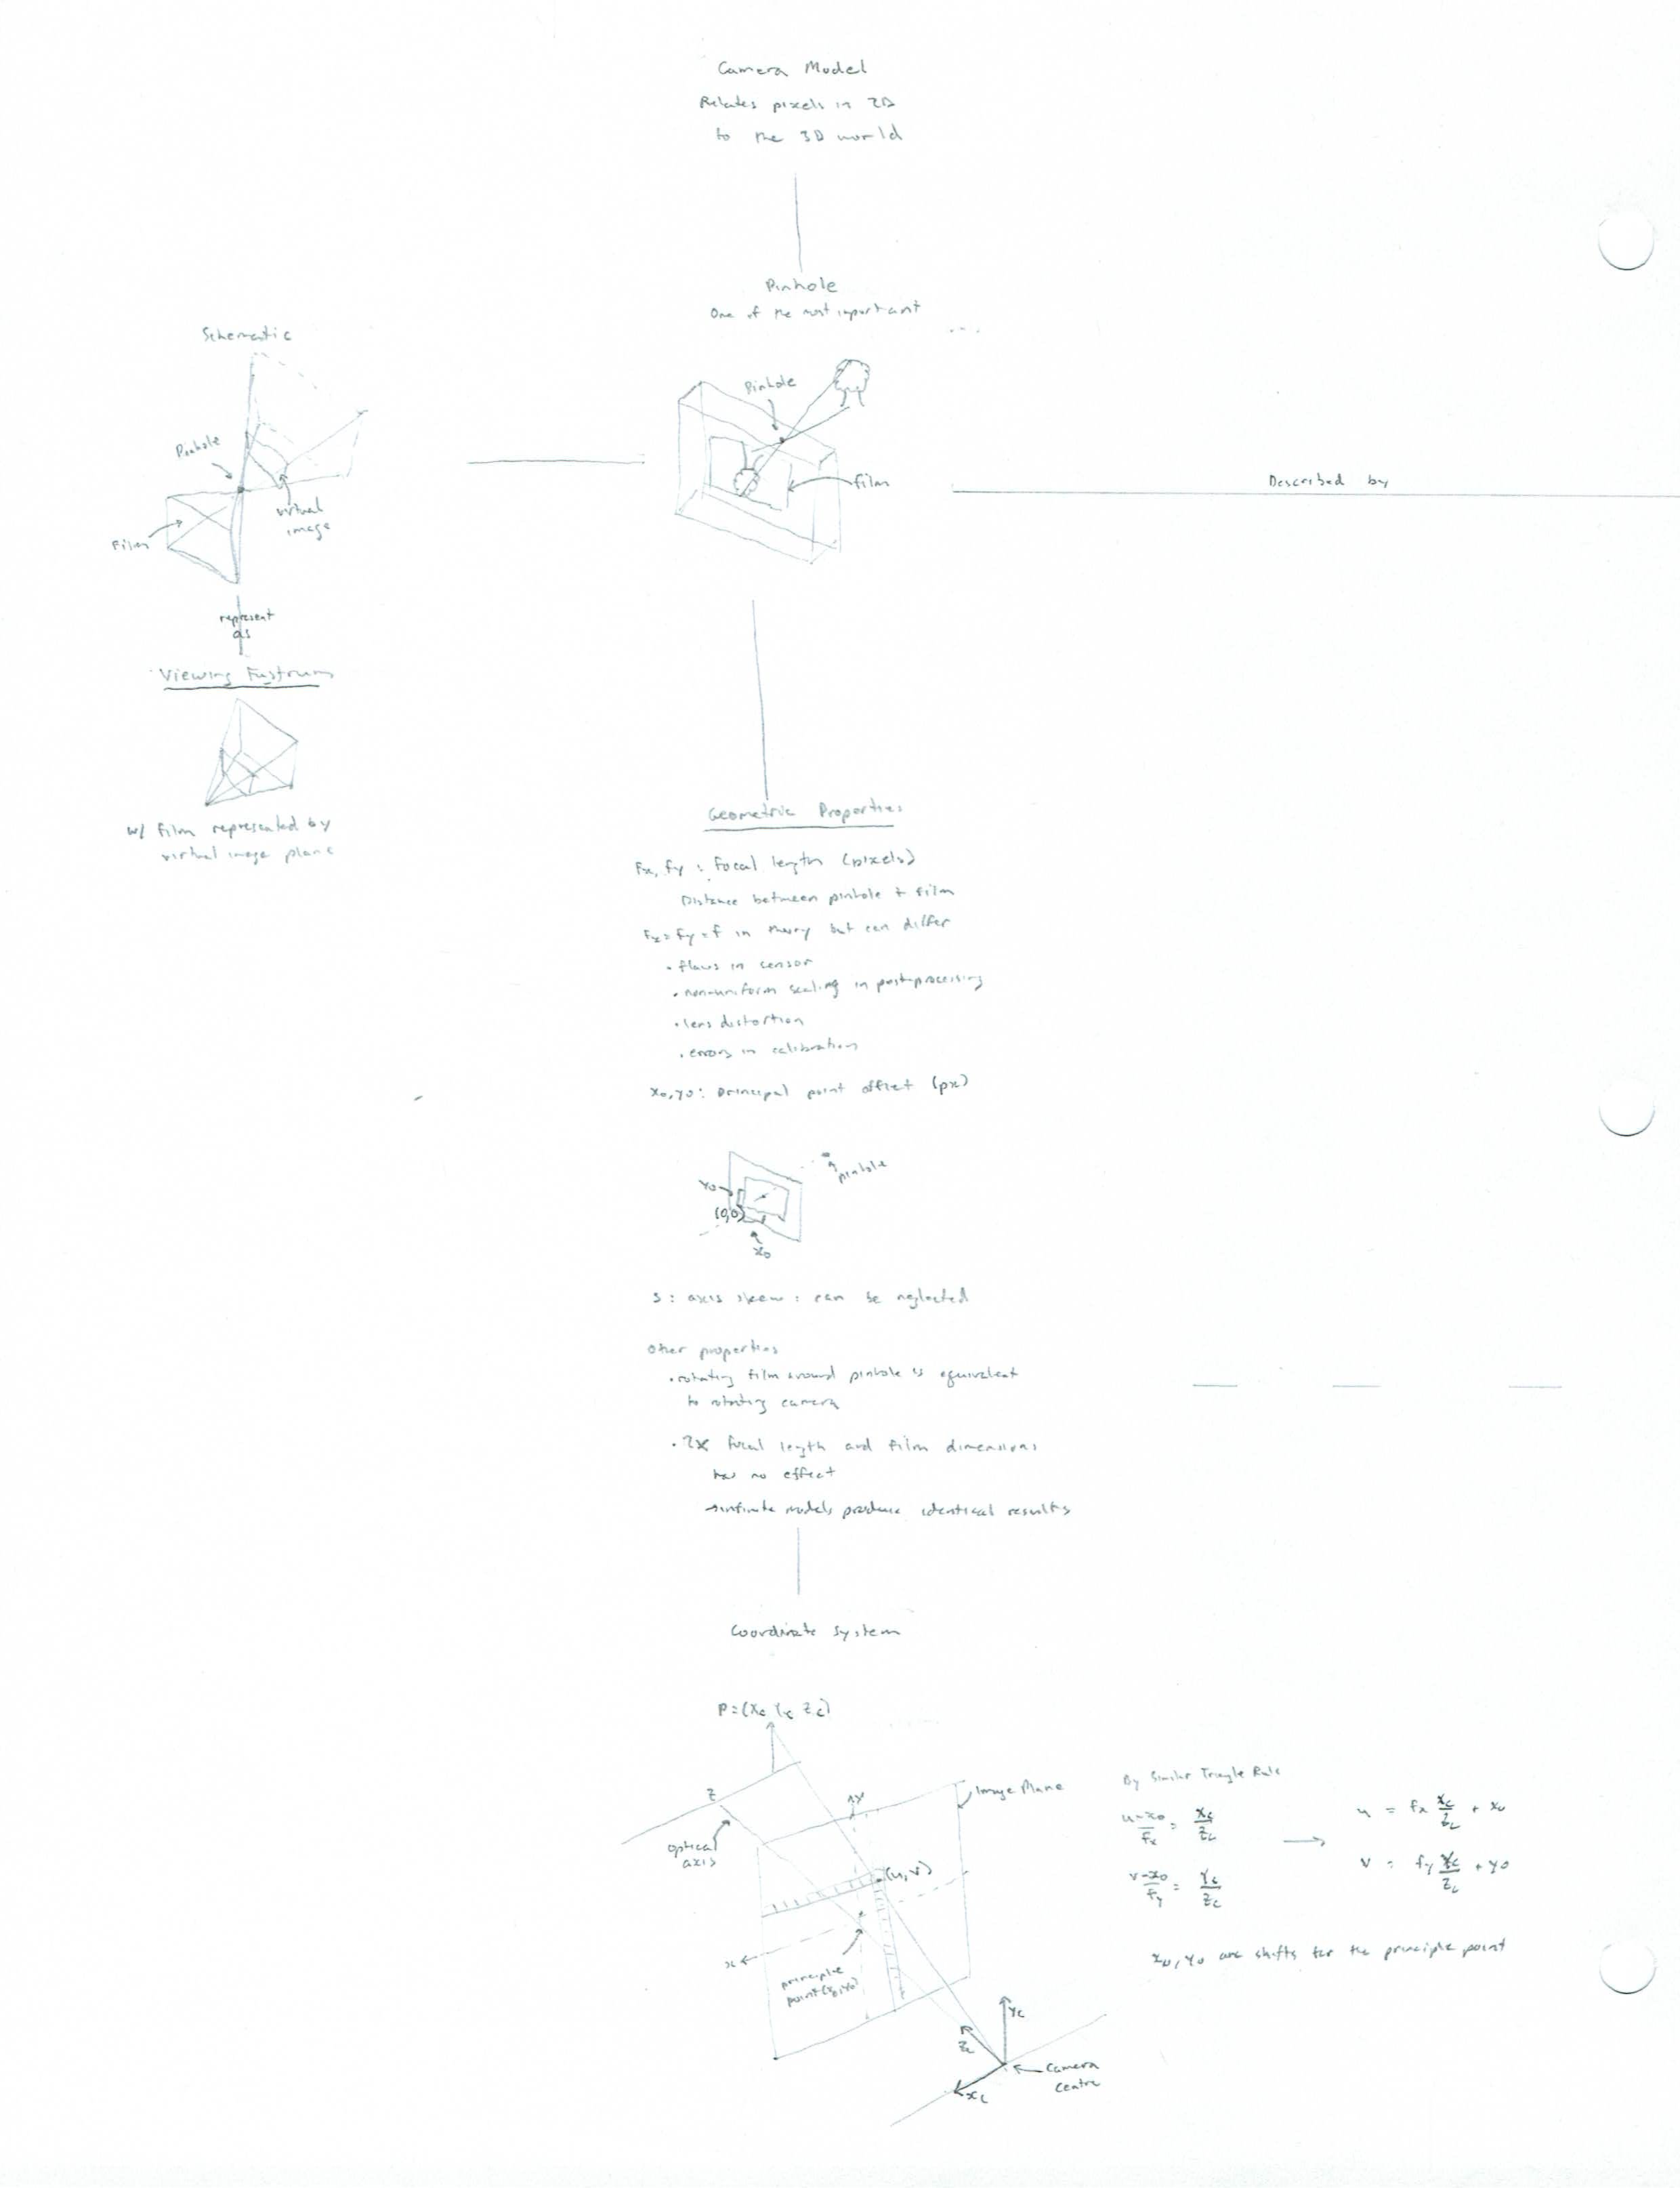 Camera Model
Relates pixels in 2D
to the 3D world
Pinhole
One of the most important
Schematic
Pinhole
Film
virtual
image
represent
as
Viewing Fustrum
w/ film represented by
virtual image plane
Pinhole
film
Described by
Geometric Properties
Fx, fy : Focal length (pixels)
Distance between pinhole + film
Fx = Fy = f in theory but can differ
• flaws in sensor
• non-uniform scaling in post-processing
• lens distortion
• errors in calibration
x0, y0: Principal point offset (px)
pinhole
y0
(0,0)
x0
s: axis skew: can be neglected
Other properties
• rotating film around pinhole is equivalent
to rotating camera
• 2x focal length and film dimensions
has no effect
→ infinite models produce identical results
Coordinate System
P = (Xc Yc Zc)
Z
optical
axis
y
Image Plane
(u,v)
x
principle
point (x0, y0)
Yc
Zc
Xc
Camera
Centre
By Similar Triangle Rule
u-x0/Fx = Xc/Zc → u = fx Xc/Zc + x0
v-x0/Fy = Yc/Zc v = fy Yc/Zc + y0
x0, y0 are shifts for the principle point